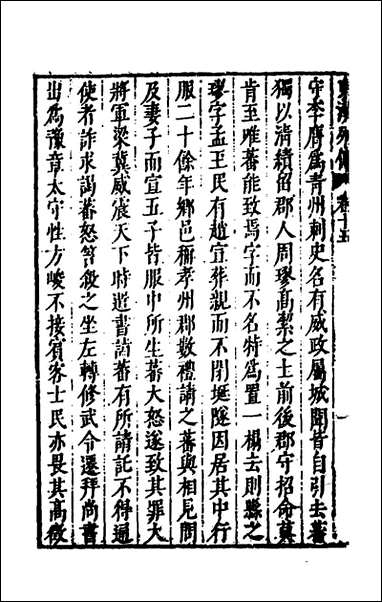 東漢列傳 卷十五
守李膺爲青州刺史名有威政屬城聞皆自引去蕃
獨以清績留郡人周璆高絜之士前後郡守招命莫
肯至唯蕃能致焉字而不名特爲置一榻去則縣之
璆字孟玉民有趙宣葬親而不閉埏隧因居其中行
服二十餘年鄉邑稱孝州郡數禮請之蕃與相見問
及妻子而宣五子皆服中所生蕃大怒遂致其罪大
將軍梁冀威震天下時遊書詣蕃有所請託不得通
使者詐求謁蕃怒笞殺之坐左轉修武令遷拜尚書
出爲豫章太守性方峻不接賓客士民亦畏其高徵